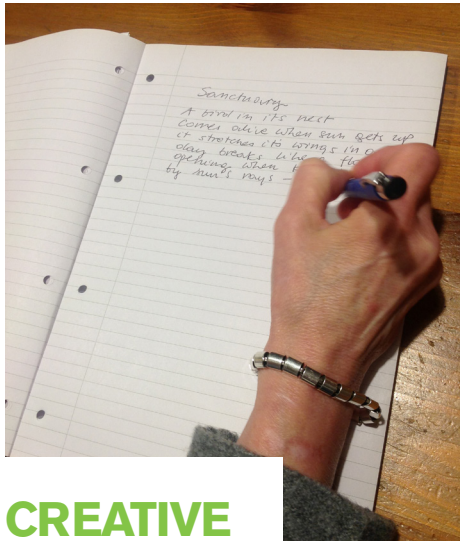 Sanctuary
A bird in its nest
Comes alive when sun gets up
it stretches its wings in
day breaks
opening when
by sun's rays –
CREATIVE